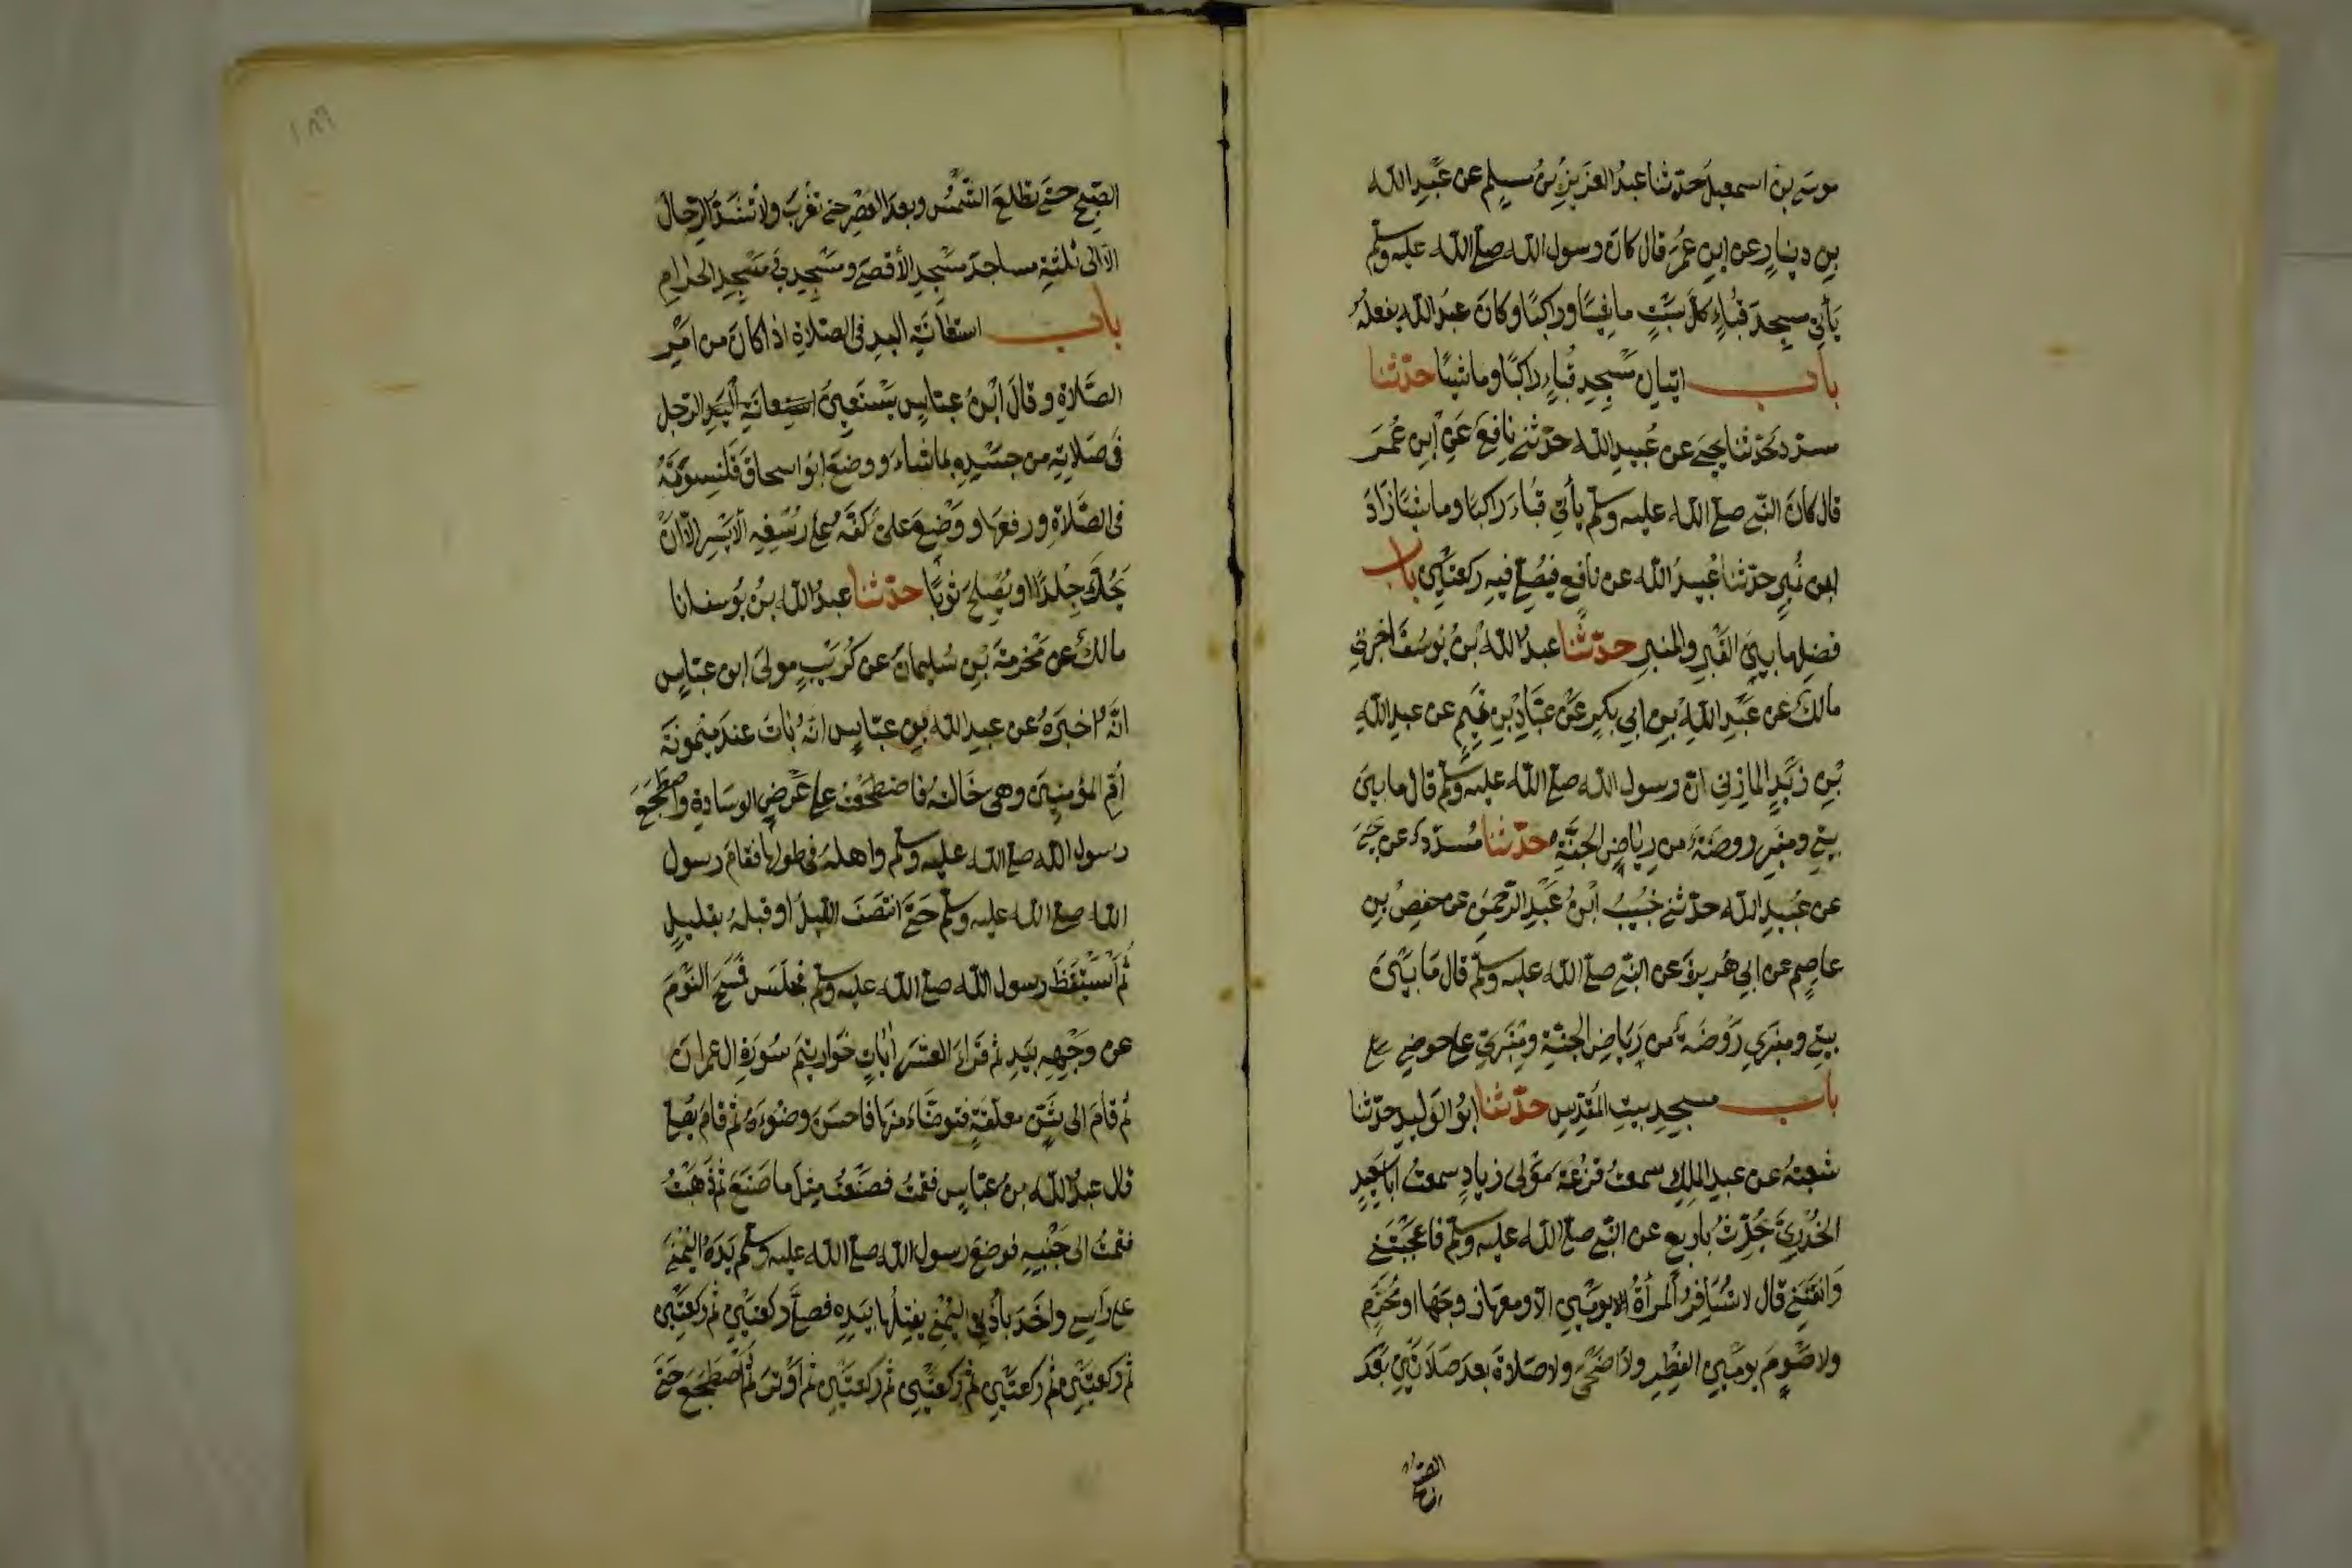 موسى بن اسمعيل حدّثنا عبدُ العزيزِ بنُ مسلمٍ عن عَبدِ الله
بنِ دينارٍ عن ابنِ عُمَرَ قال كانَ رسول الله صلى الله عليه وسلم
يأتي مسجدَ قُباءٍ كلَّ سَبتٍ ماشيًا وراكبًا وكانَ عبدُ الله يفعلُهُ
باب اتيان مسجد قباء راكبًا وماشيًا حدّثنا
مسدد حدّثنا يحيى عن عُبيدِ الله حدّثني نافع عَنِ ابنِ عُمَرَ
قال كانَ النبي صلى الله عليه وسلم يأتي قباءَ راكبًا وماشيًا زادَ
ابن نُميرٍ حدّثنا عُبيدُ الله عن نافع فيُصلي فيه ركعتين باب
فضل ما بين القبر والمنبر حدّثنا عبدُ الله بنُ يوسُفَ اخبرني
مالكٌ عن عَبدِ اللهِ بنِ ابي بكرٍ عَن عبّادِ بنِ تميمٍ عن عبدِ اللهِ
بنِ زَيدٍ المازني انّ رسول الله صلى الله عليه وسلم قال ما بين
بيتي ومنبري روضَةٌ من رياضِ الجنّةِ حدّثنا مُسدّد عن يحيى
عن عُبيدِ الله حدّثني خُبيبُ ابنُ عَبدِ الرّحمنِ عن حفصِ بنِ
عاصمٍ عن ابي هُريرةَ عن النبي صلى الله عليه وسلم قال مَا بَيْنَ
بيتي ومنبري رَوْضَةٌ من رِيَاضِ الجنّة ومِنْبَري على حوضي
باب مسجدِ بيتِ المَقدِسِ حدّثنا ابُو الوَليدِ حدّثنا
شعبةُ عن عبدِ الملِكِ سمعتُ قَزعَةَ مَوْلى زيادٍ سمعتُ أبا سَعيدٍ
الخُدريَّ يُحدِّثُ باربعٍ عن النبي صلى الله عليه وسلم فاعجَبْنَني
وَانَقْنَني قال لا تُسَافِرُ المرأةُ يومَينِ الّا ومعهَا زوجُها او مَحْرَمٌ
ولا صَوْمَ يومَينِ الفِطْرِ والاضحى ولا صَلاةَ بعدَ صَلاتَيْنِ بَعْدَ
الصّبح
الصّبحِ حتى تطلعَ الشّمسُ وبعدَ العَصْرِ حتى تغرُبَ ولا تُشَدّ الرّحالُ
الّا الى ثلثةِ مساجدَ مسْجِدِ الأقصى ومَسْجِدي ومسْجِدِ الحرامِ
باب استعانَةِ اليدِ في الصّلاةِ اذا كانَ من امْرِ
الصّلاةِ وقالَ ابنُ عبّاسٍ يَسْتَعينُ الرّجل
في صَلاتِه من جسَدِهِ بما شاءَ ووضعَ ابو اسحاقَ قلنسوَتَهُ
في الصّلاةِ ورفعَها ووَضَعَ عليّ كفّهُ على رُسْغِهِ الأيسرِ الّا انْ
يَحُكَّ جِلْدًا او يُصلحَ ثوبًا حدّثنا عبدُ الله بنُ يُوسفَ انا
مالكٌ عن مَخرمةَ بنِ سُليمانَ عن كُرَيْبٍ مولى ابن عبّاسٍ
انّهُ اخبرَهُ عن عبدِ الله بنِ عبّاسٍ انّهُ باتَ عندَ ميمونَةَ
أمِّ المؤمنينَ وهي خَالتُهُ فاضطجعتُ على عَرْضِ الوسَادةِ واضطجَعَ
رسول الله صلى الله عليه وسلم واهلهُ في طولها فقامَ رسول
الله صلى الله عليه وسلم حتّى انتصَفَ الليلُ او قبلهُ بقليلٍ
ثُمّ اسْتيقَظَ رسول الله صلى الله عليه وسلم فجلَسَ فمسَحَ النّوْمَ
عن وجْهِهِ بيَدِهِ ثم قراءَ العشرَ اياتٍ خَواتيمَ سُورَةِ ال عمرانَ
ثم قامَ الى شَنٍّ معلّقةٍ فتوضّاءَ منهَا فاحسَنَ وضُوءَهُ ثم قامَ يُصلي
قال عبدُ الله بنُ عبّاسٍ فقمتُ فصنَعْتُ مِثلَ ما صَنَعَ ثم ذهَبْتُ
فقمتُ الى جَنْبِهِ فوضعَ رسول الله صلى الله عليه وسلم يَدَهُ اليُمْنى
على رَاسي واخَذَ باُذُني اليُمْنى يفتِلُها بيَدِهِ فصلّى ركعتَيْنِ ثم ركعتَيْنِ
ثم ركعتَيْنِ ثم ركعتَيْنِ ثم ركعتَيْنِ ثم ركعتَيْنِ ثم أوْترَ ثم اضطجَعَ حتى